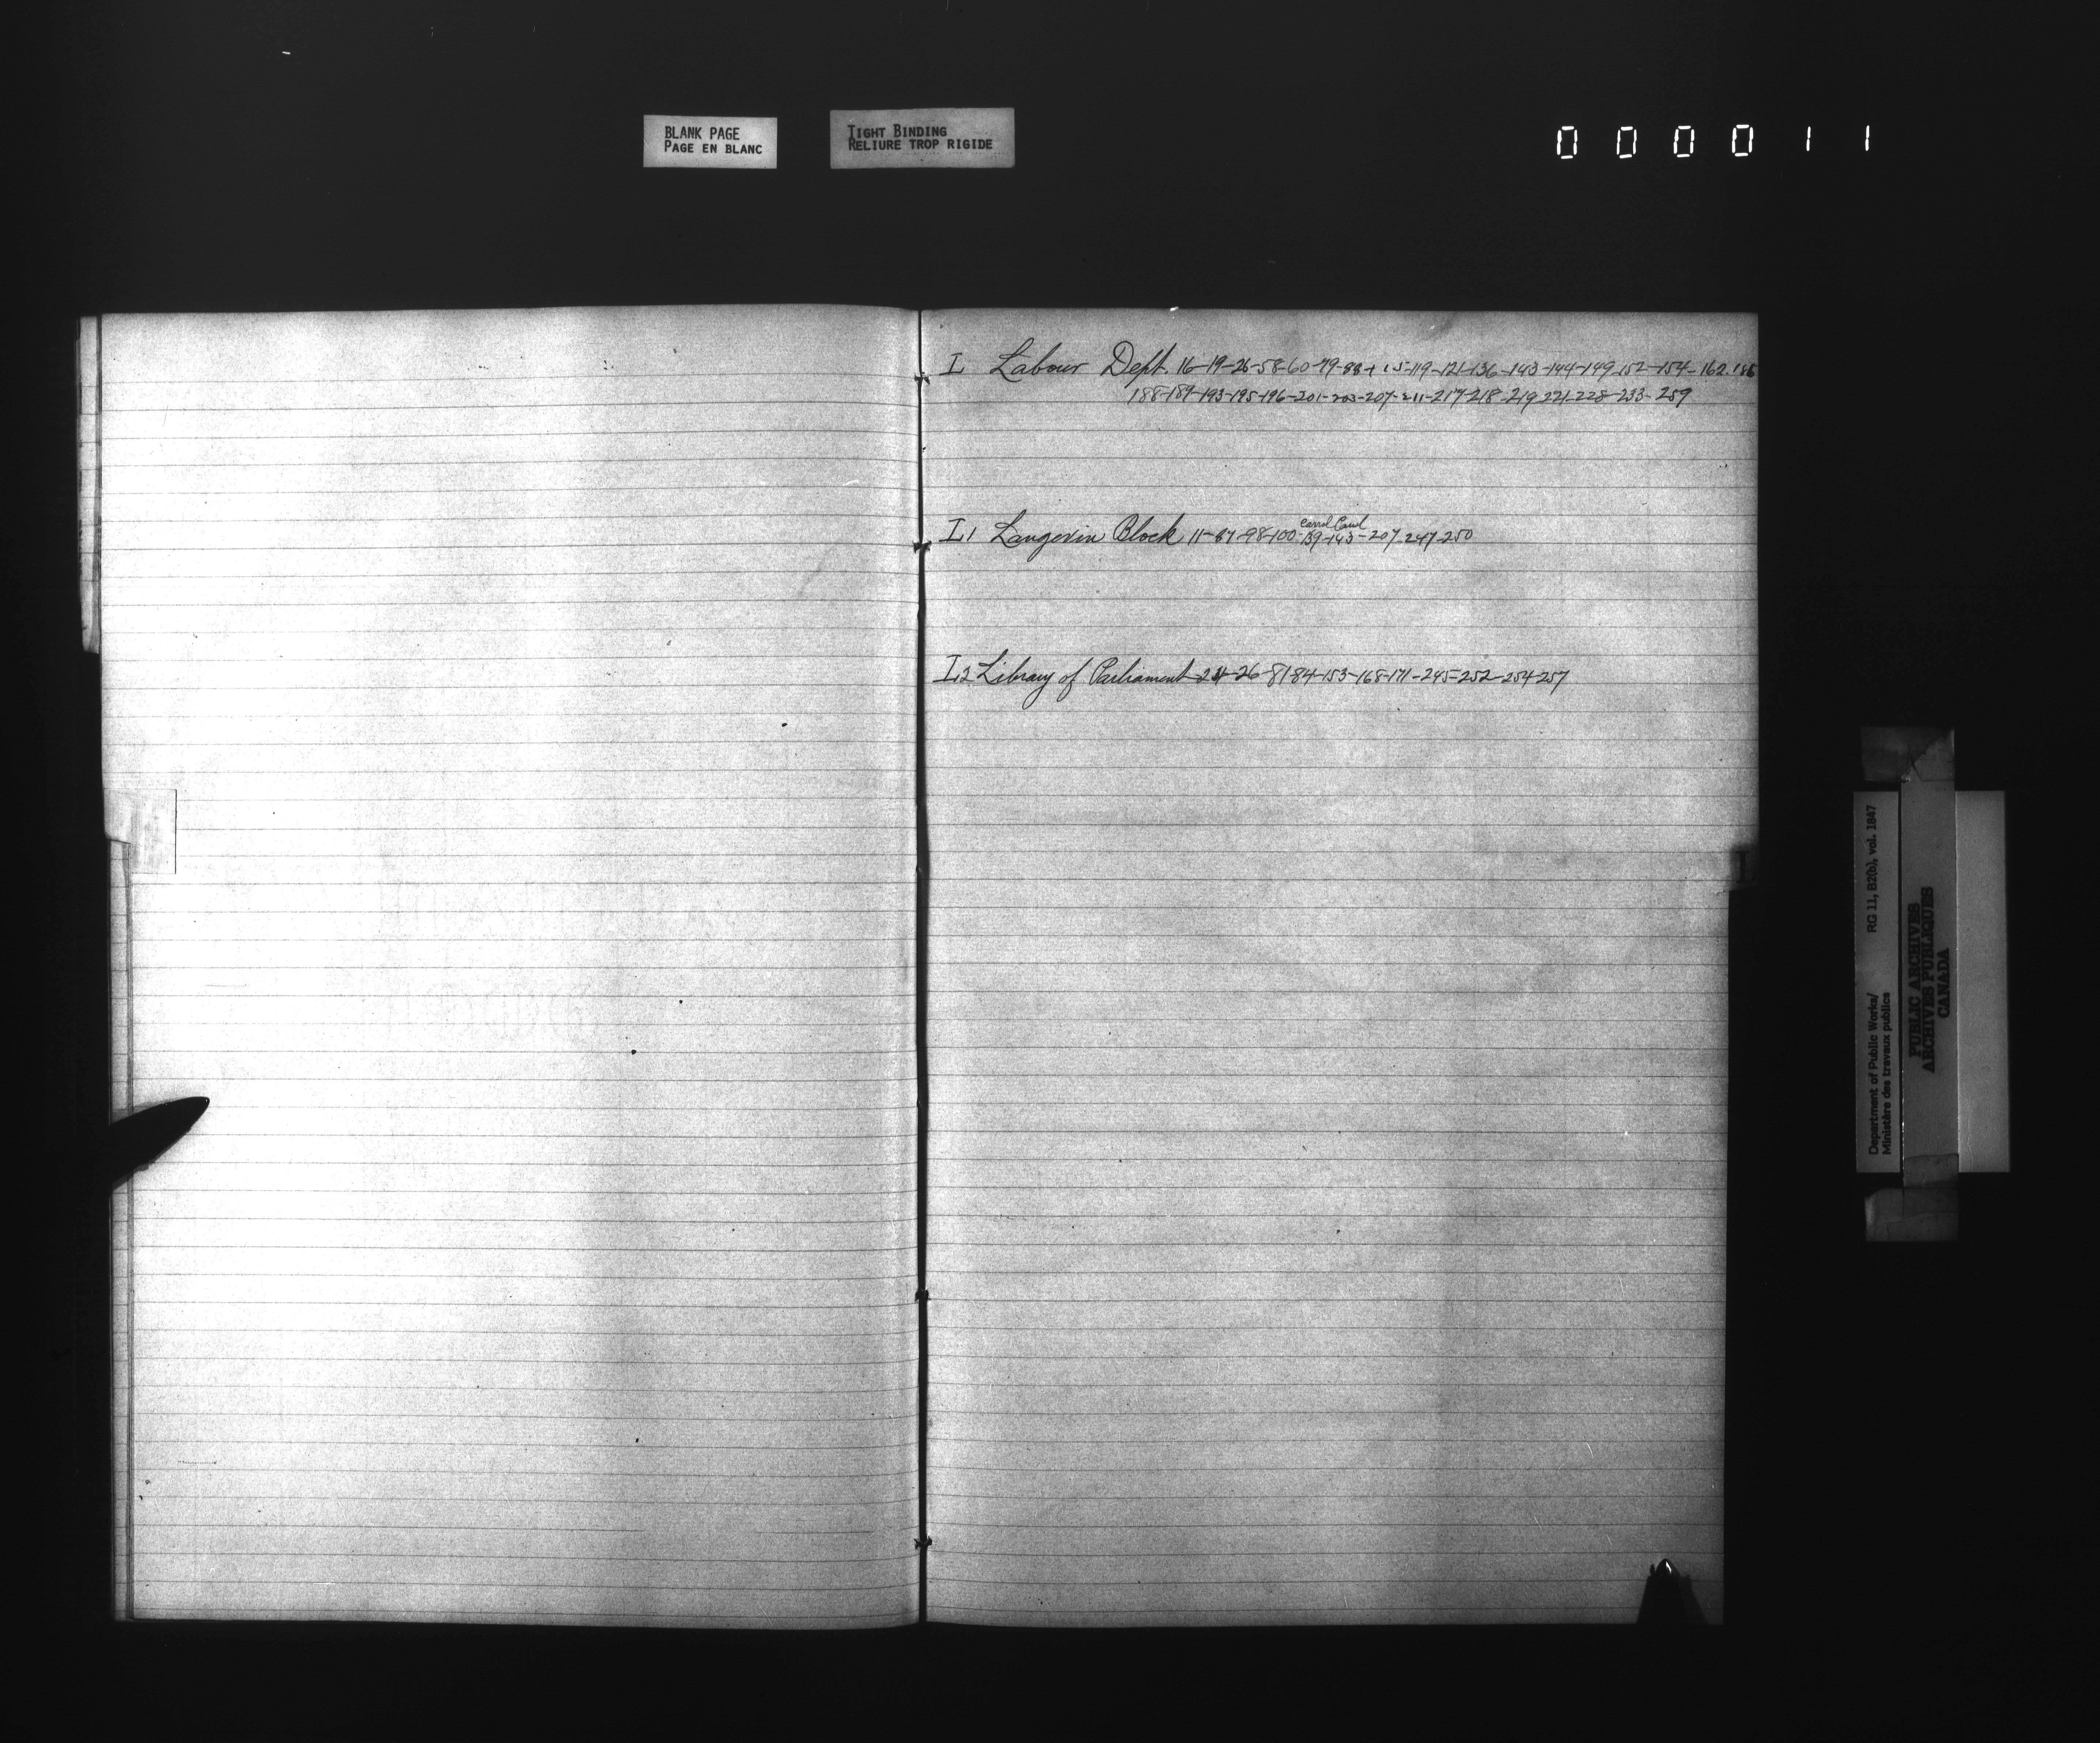 BLANK PAGE
PAGE EN BLANC
TIGHT BINDING
RELIURE TROP RIGIDE
000011
L Labour Dept. 16-19-26-58-60-79-88-115-119-121-136-143-144-149-152-154-162-186
188-189-193-195-196-201-203-207-211-217-218-219-221-228-233-259
L1 Langevin Block 11-87-98-100-139-143-207-247-250
L2 Library of Parliament 24-26-81-84-153-168-171-245-252-254-257
L
Department of Public Works/ RG 11, B2(b), vol. 1847
Ministère des travaux publics
PUBLIC ARCHIVES
ARCHIVES PUBLIQUES
CANADA